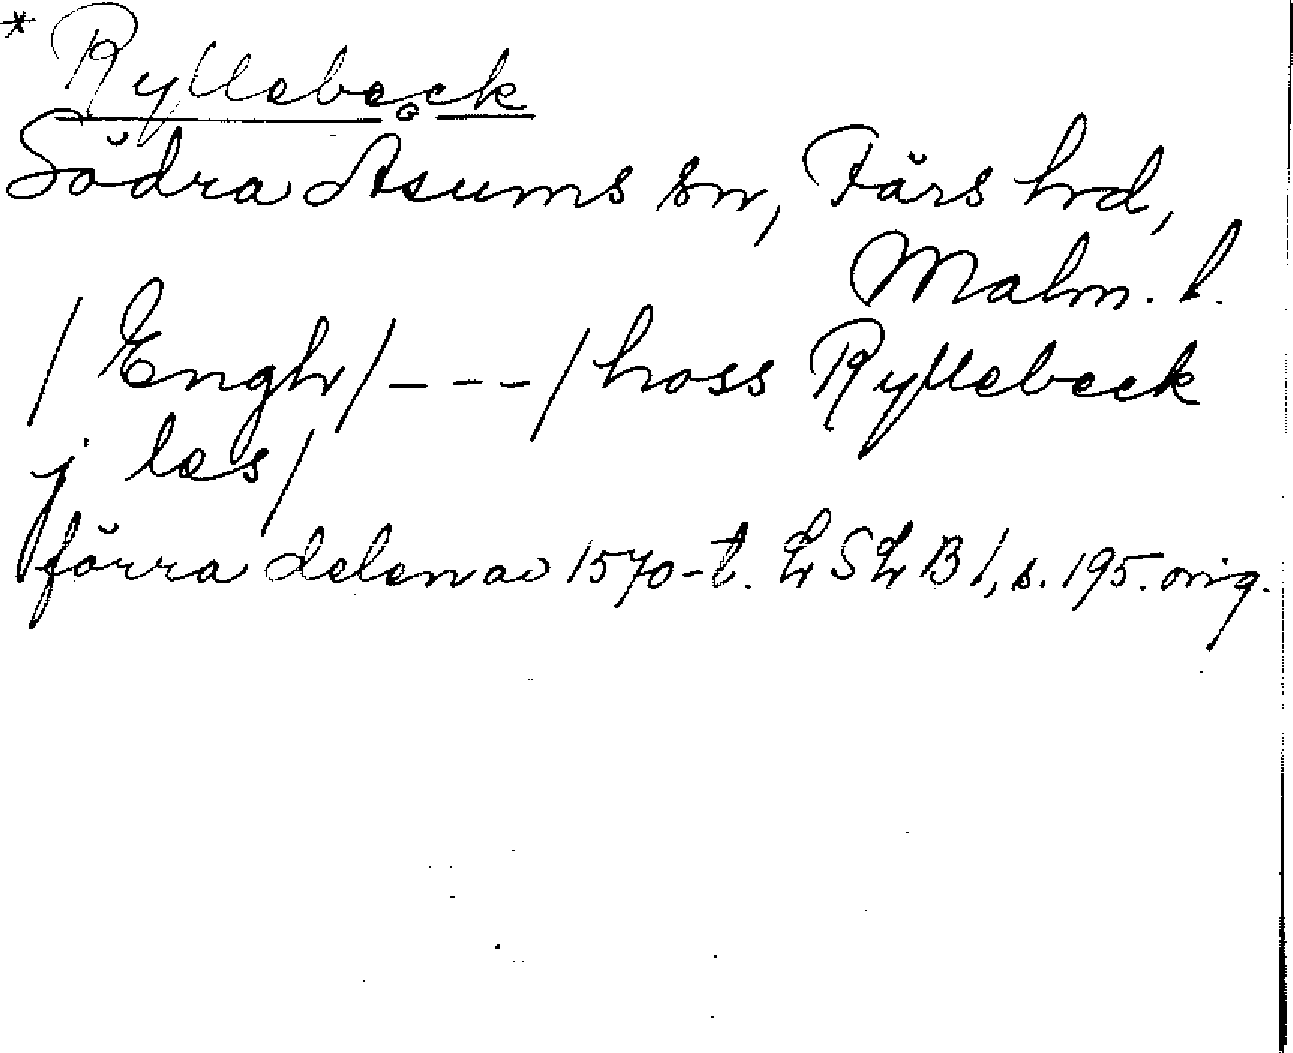 * Ryllebeck
Södra Åsums sn, Färs hrd,
Malm. l.
/ Engh / - - - / hoss Ryllebeck
j læs /
förra delen av 1570-t. LSLB 1, s. 195. orig.